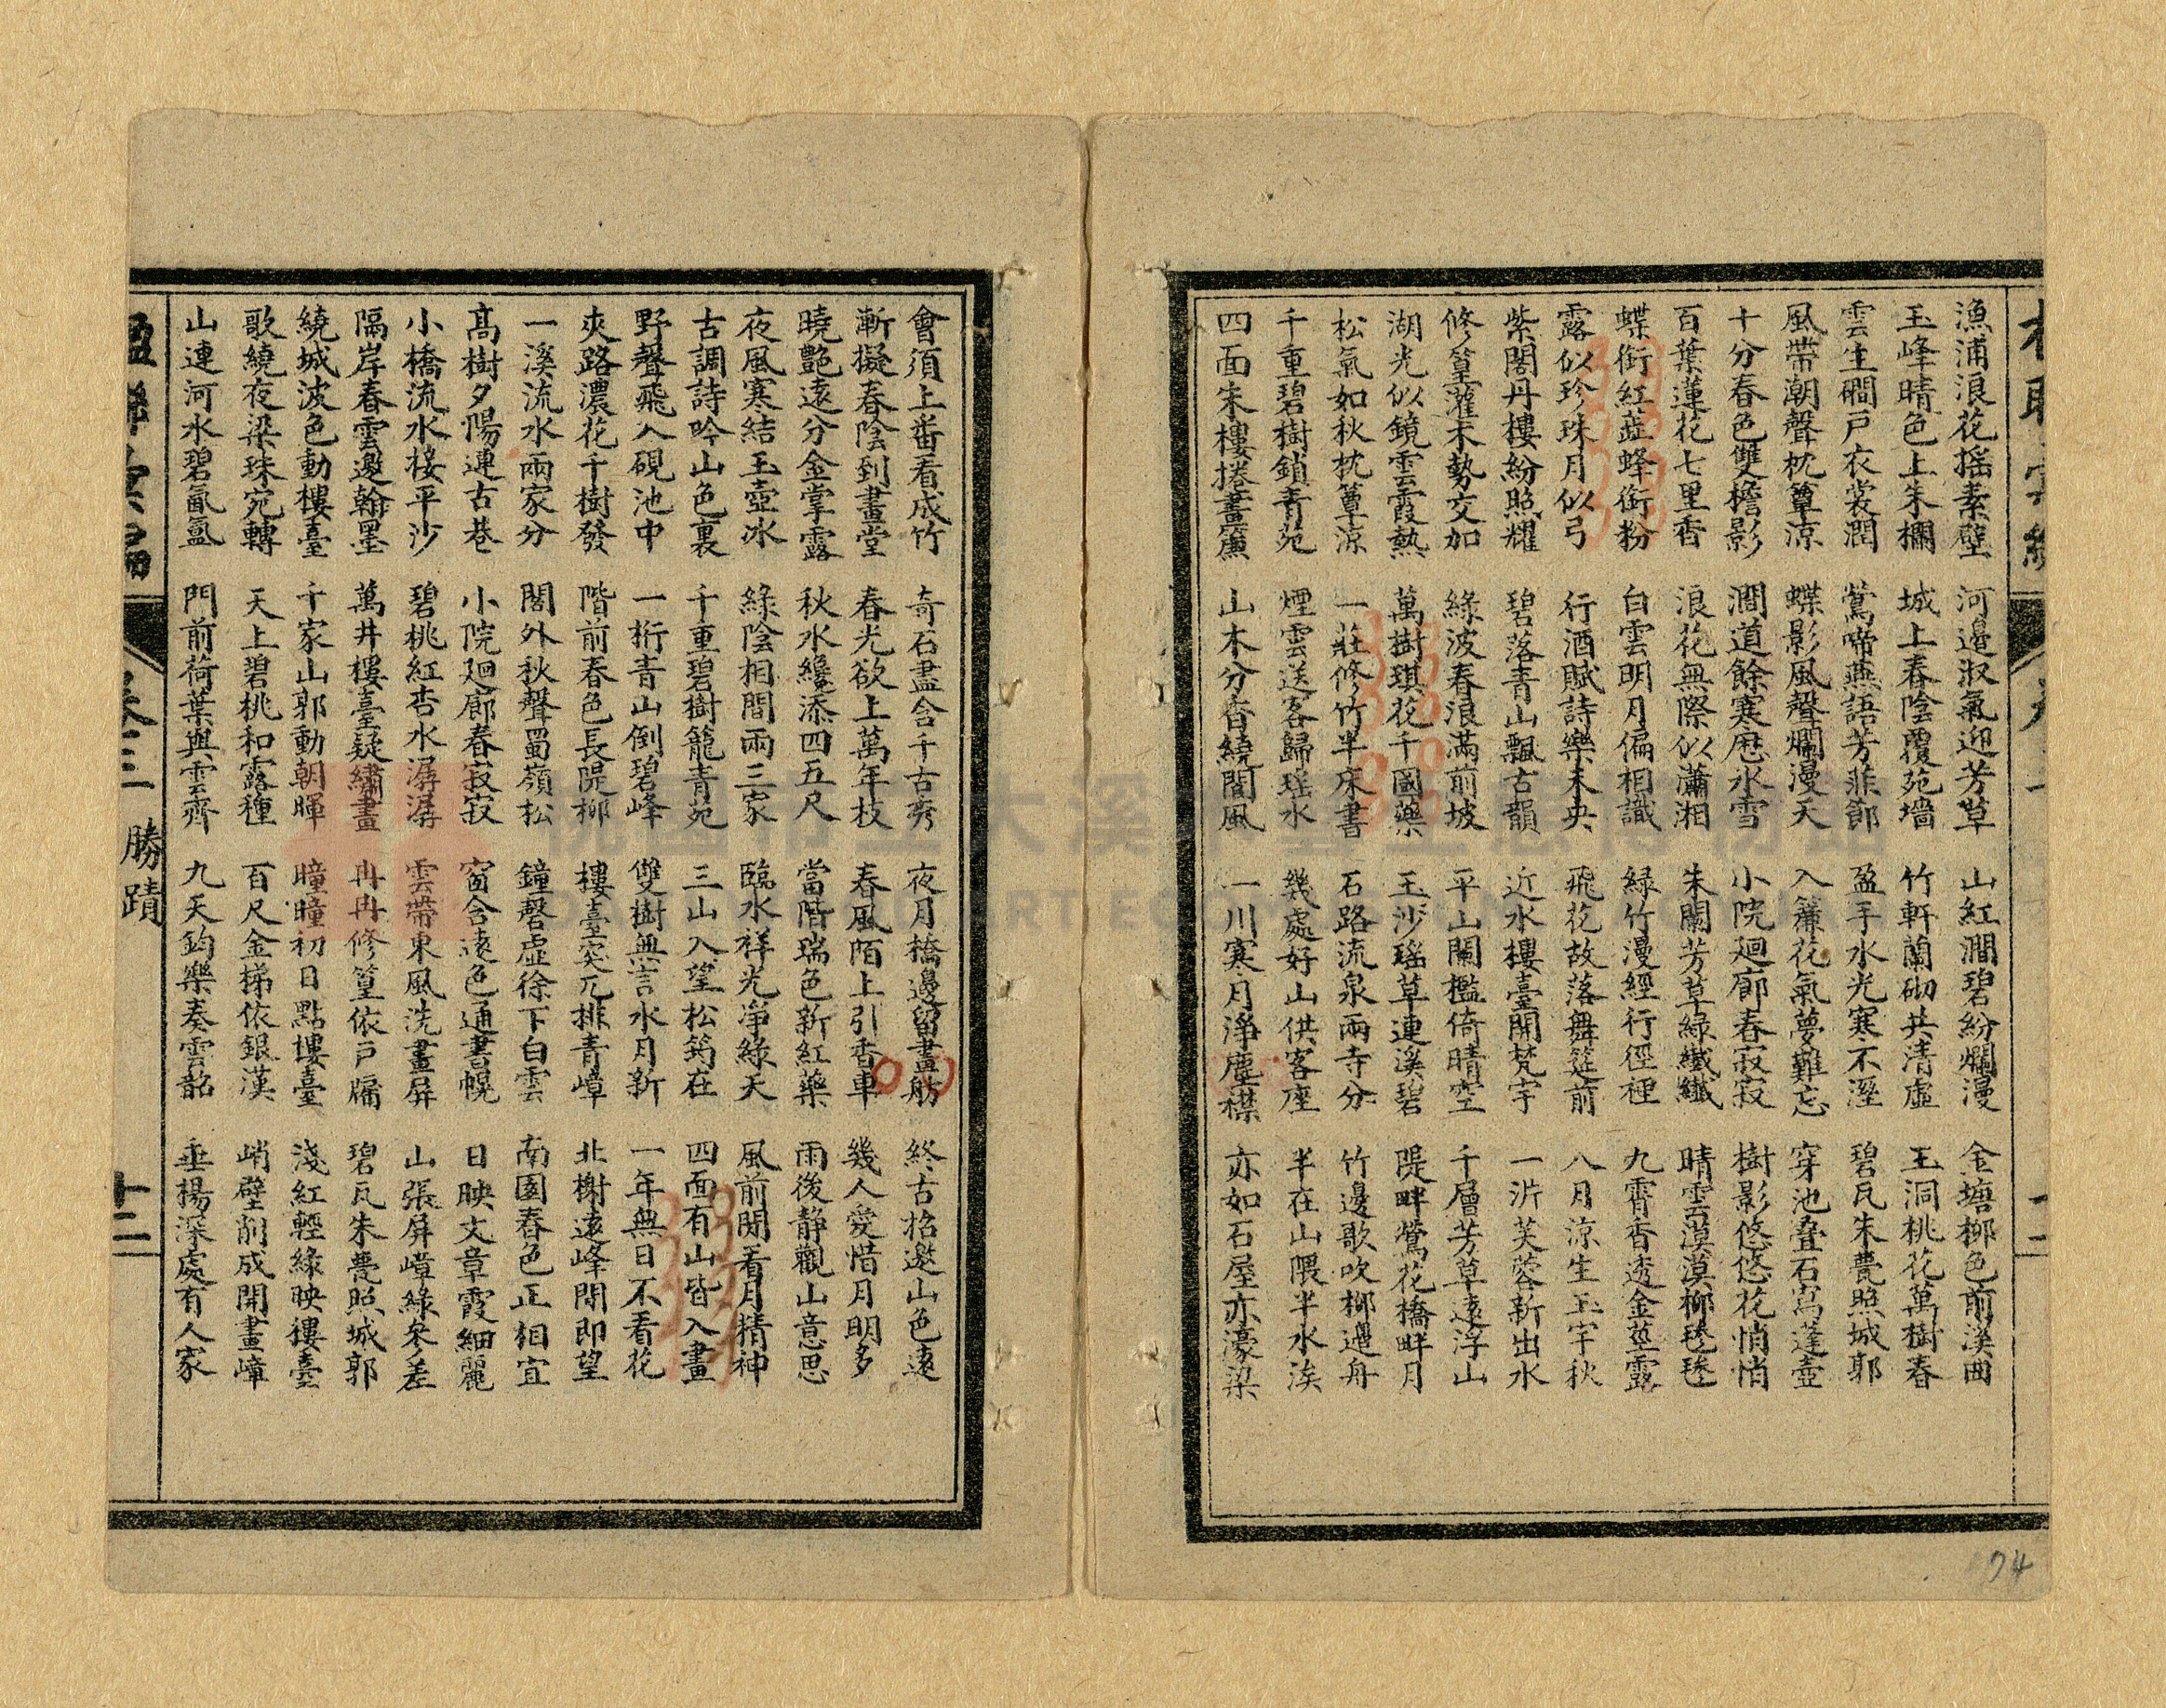 漁浦浪花搖素壁　河邊淑氣迎芳草　山紅澗碧紛爛漫　金塘柳色前溪曲
玉峰晴色上朱欄　城上春陰覆苑墻　竹軒蘭砌共清虛　玉洞桃花萬樹春
雲生磵戶衣裳潤　鶯啼燕語芳菲節　盈手水光寒不溼　碧瓦朱甍照城郭
風帶潮聲枕簟涼　蝶影風聲爛漫天　入簾花氣夢難忘　穿池叠石寫蓬壺
十分春色雙檐影　澗道餘寒歷冰雪　小院廻廊春寂寂　樹影悠悠花悄悄
百葉蓮花七里香　浪花無際似瀟湘　朱闌芳草綠纖纖　晴雲漠漠柳毿毿
蝶銜紅蕋蜂銜粉　白雲明月偏相識　緑竹漫經行徑裡　九霄香透金莖露
露似珍珠月似弓　行酒賦詩樂未央　飛花故落舞筵前　八月涼生玉宇秋
紫閣丹樓紛照耀　碧落青山飄古韻　近水樓臺開梵宇　一泝芙蓉新出水
修篁灌木勢交加　綠波春浪滿前坡　平山闌檻倚晴空　千層芳草遠浮山
湖光似鏡雲霞熱　萬樹琪花千圃藥　玉沙瑤草連溪碧　隄畔鶯花橋畔月
松氣如秋枕簟涼　一莊修竹半床書　石路流泉兩寺分　竹邊歌吹柳邊舟
千重碧樹鎖青苑　煙雲送客歸瑤水　幾處好山供客座　半在山隈半水涘
四面朱樓捲畫簾　山木分香繞閬風　一川寒月淨塵襟　亦如石屋亦濠梁
會須上番看成竹　奇石盡含千古秀　夜月橋邊留畫舫　終古招邀山色遠
漸擬春陰到畫堂　春光欲上萬年枝　春風陌上引香車　幾人愛惜月明多
曉艷遠分金掌露　秋水纔添四五尺　當階瑞色新紅藥　雨後靜觀山意思
夜風寒結玉壺冰　綠陰相間兩三家　臨水祥光淨綠天　風前閒看月精神
古調詩吟山色裏　千重碧樹籠青苑　三山入望松筠在　四面有山皆入畫
野聲飛入硯池中　一桁青山倒碧峰　雙樹無言水月新　一年無日不看花
夾路濃花千樹發　階前春色長隄柳　樓臺突兀排青嶂　北榭遠峰閒即望
一溪流水兩家分　閣外秋聲蜀嶺松　鐘磬虛徐下白雲　南園春色正相宜
高樹夕陽連古巷　小院廻廊春寂寂　窗含遠色通書幌　日映文章霞細麗
小橋流水接平沙　碧桃紅杏水潺潺　雲帶東風洗畫屏　山張屏嶂綠參差
隔岸春雲邀翰墨　萬井樓臺疑繡畫　冉冉修篁依戶牖　碧瓦朱甍照城郭
繞城波色動樓臺　千家山郭動朝暉　曈曈初日點樓臺　淺紅輕綠映樓臺
歌繞夜梁珠宛轉　天上碧桃和露種　百尺金梯依銀漢　峭壁削成開畫嶂
山連河水碧氤氳　門前荷葉與雲齊　九天鈞樂奏雲韶　垂楊深處有人家
卷三　勝蹟　十二
94